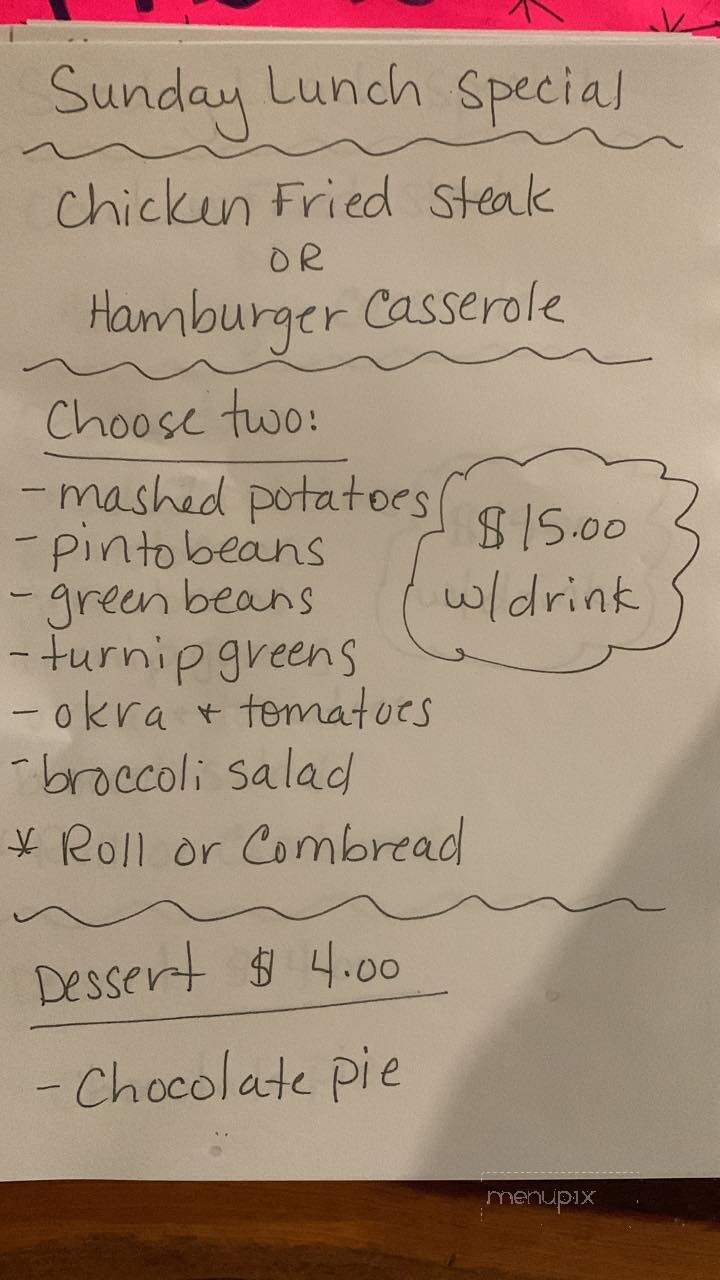 Sunday Lunch Special
Chicken Fried Steak
OR
Hamburger Casserole
Choose two:
- mashed potatoes
- pinto beans
- green beans
- turnip greens
- okra + tomatoes
- broccoli salad
* Roll or Cornbread
$15.00
w/drink
Dessert $4.00
- Chocolate pie
menupix